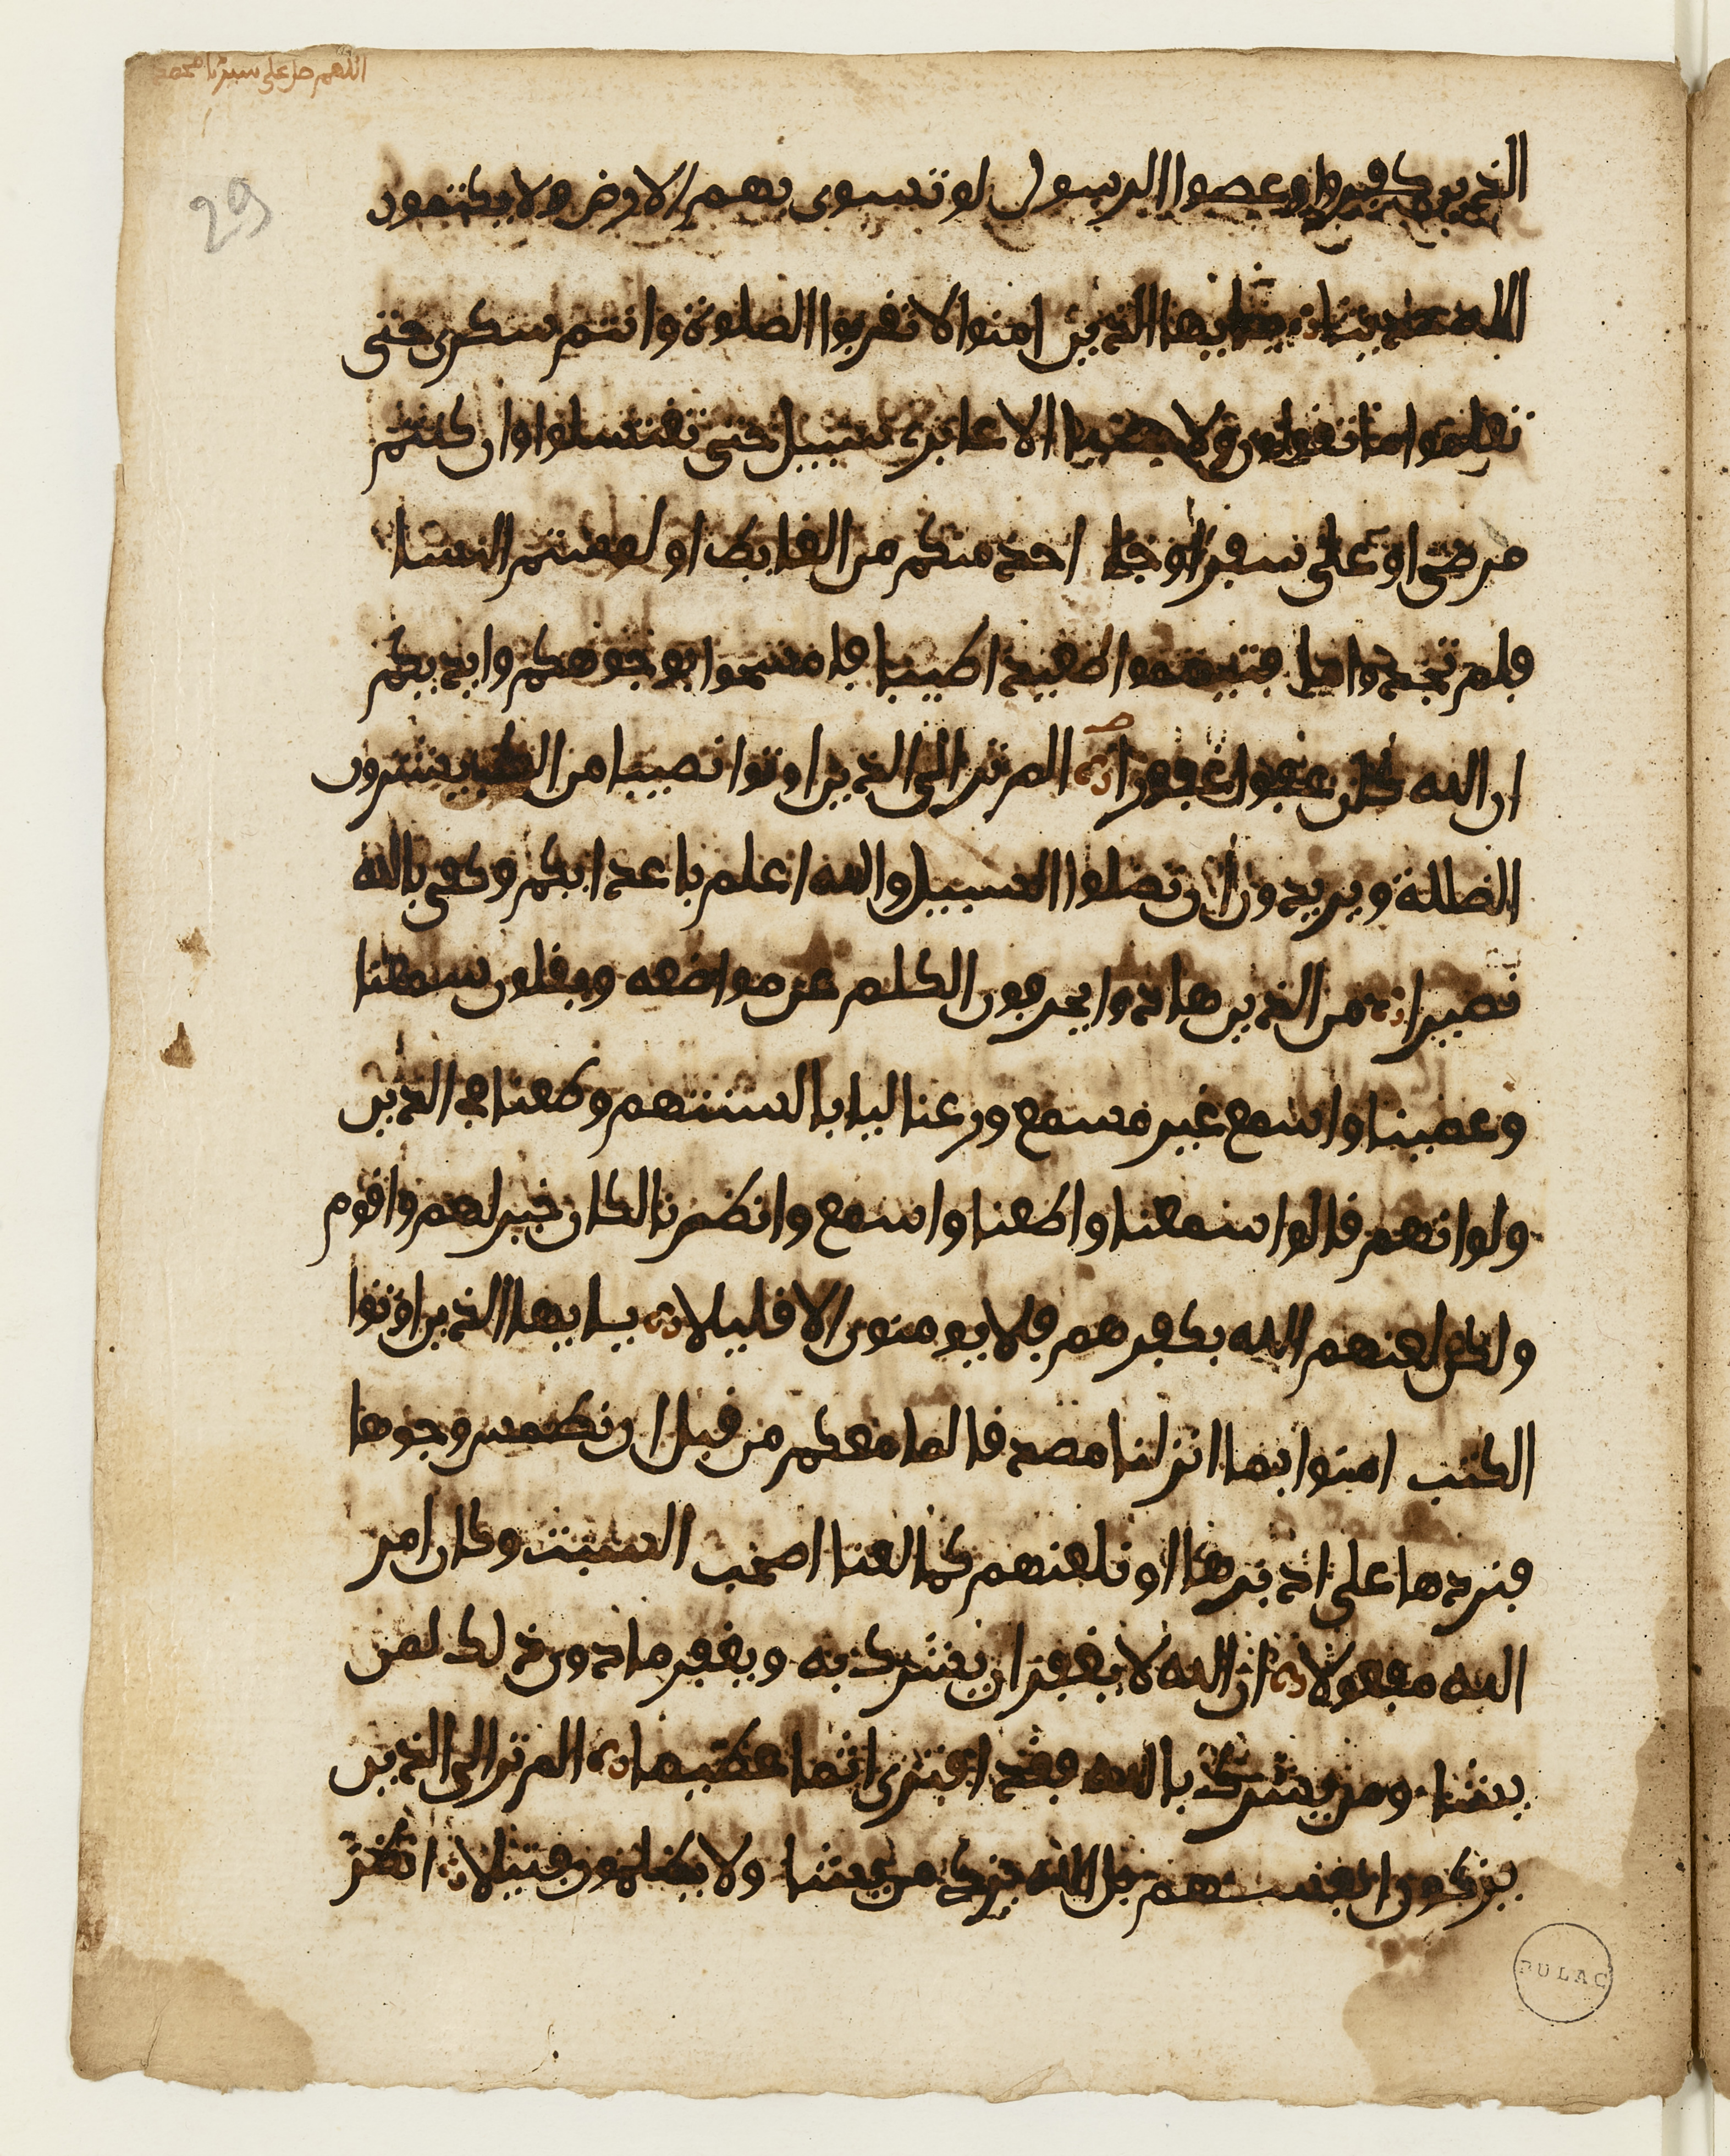 اللهم صل على سيدنا محمد
29
الذين كفروا وعصوا الرسول لو تسوى بهم الارض ولا يكتمون
الله حديثا يايها الذين امنوا لا تقربوا الصلوة وانتم سكرى حتى
تعلموا ما تقولون ولا جنبا الا عابرے سبيل حتى تغتسلوا وان كنتم
مرضى او على سفر او جا احد منكم من الغايط او لمستم النسا
فلم تجدوا ما فتيمموا صعيدا طيبا فامسحوا بوجوهكم وايديكم
ان الله كان عفوا غفورا الم تر الى الذين اوتوا نصيبا من الكتب يشترون
الضللة ويريدون ان تضلوا السبيل والله اعلم باعدايكم وكفى بالله
نصيرا من الذين هادوا يحرفون الكلم عن مواضعه ويقلون سمعنا
وعصينا واسمع غير مسمع ورعنا ليا بالسنتهم وطعنا في الدين
ولو انهم قالوا سمعنا واطعنا واسمع وانظرنا لكان خيرا لهم واقوم
ولكن لعنهم الله بكفرهم فلا يومنون الا قليلا يايها الذين اوتوا
الكتب امنوا بما انزلنا مصدقا لما معكم من قبل ان نطمس وجوها
فنردها على ادبرها او نلعنهم كما لعنا اصحب السبت وكان امر
الله مفعولا ان الله لا يغفر ان يشرك به ويغفر ما دون ذلك لمن
يشا ومن يشرك بالله فقد افترى اثما عظيما الم تر الى الذين
يزكون انفسهم بل الله يزكى من يشا ولا يظلمون فتيلا انظر
BULAC